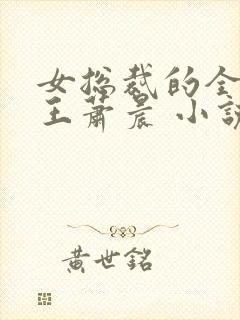 女总裁的全
王萧晨 小说
黄世铭